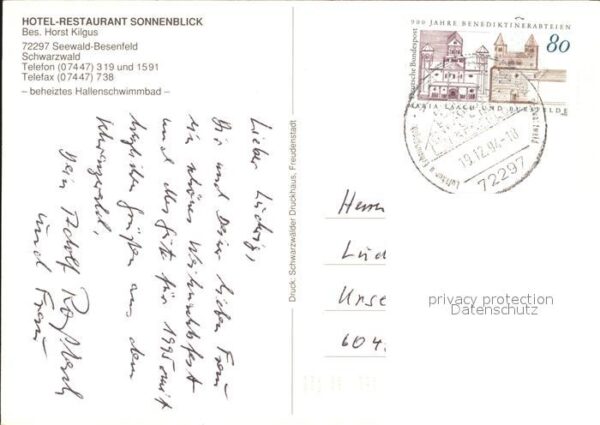 HOTEL-RESTAURANT SONNENBLICK
Bes. Horst Kilgus
72297 Seewald-Besenfeld
Schwarzwald
Telefon (07447) 319 und 1591
Telefax (07447) 738
– beheiztes Hallenschwimmbad –
Lieber Ludwig,
Dir und Deiner lieben Frau
ein schönes Weihnachtsfest
und alles Gute für 1995 mit
herzlichen Grüßen aus dem
Schwarzwald,
Dein Adolf
und Frau
Druck: Schwarzwälder Druckhaus, Freudenstadt
900 JAHRE BENEDIKTINERABTEIEN
Deutsche Bundespost
80
MARIA LAACH UND BURSFELDE
19.12.94-18
72297
Herrn
Lud
Unse
604
privacy protection
Datenschutz